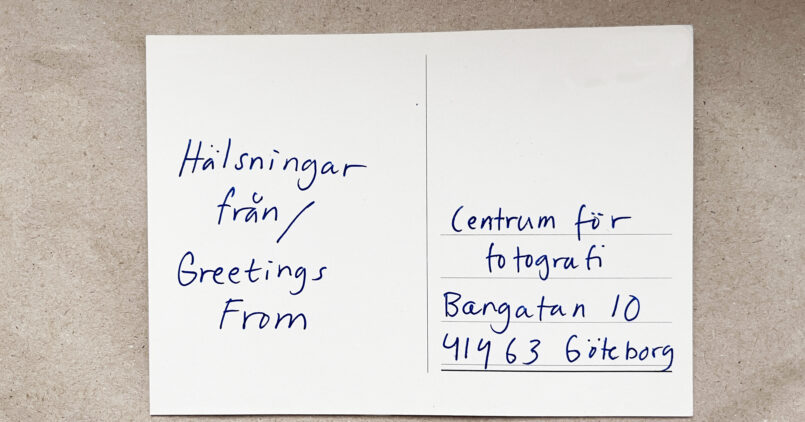 Hälsningar
från/
Greetings
From
Centrum för
fotografi
Bangatan 10
41463 Göteborg